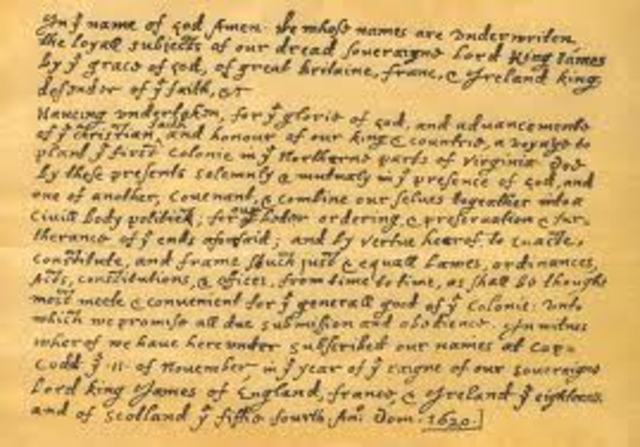 In yͤ name of god Amen. We whose names are underwriten,
the loyall subjects of our dread soveraigne Lord King James
by yͤ grace of god, of great Britaine, franc, & Ireland king,
defender of yͤ faith, &c
Haveing undertaken, for yͤ glorie of god, and advancemente
of yͤ christian faith and honour of our king & countrie, a voyage to
plant yͤ first colonie in yͤ Northerne parts of virginia Doe
by these presents solemnly & mutualy in yͤ presence of god, and
one of another, covenant, & combine our selves togeather into a
Civill body politick; for our better ordering, & preservation & fur-
therance of yͤ ends aforesaid; and by vertue hearof to enacte,
constitute, and frame shuch just & equall lawes, ordinances,
Acts, constitutions, & offices, from time to time, as shall be thought
most meete & convenient for yͤ generall good of yͤ Colonie: unto
which we promise all due submission and obedience. In witnes
wherof we have hereunder subscribed our names at Cap=
Codd yͤ .11. of November, in yͤ year of yͤ raigne of our soveraigne
Lord king James of England, franc, & Ireland yͤ eighteenth
and of Scotland yͤ fiftie fourth. Ano: Dom. 1620.]